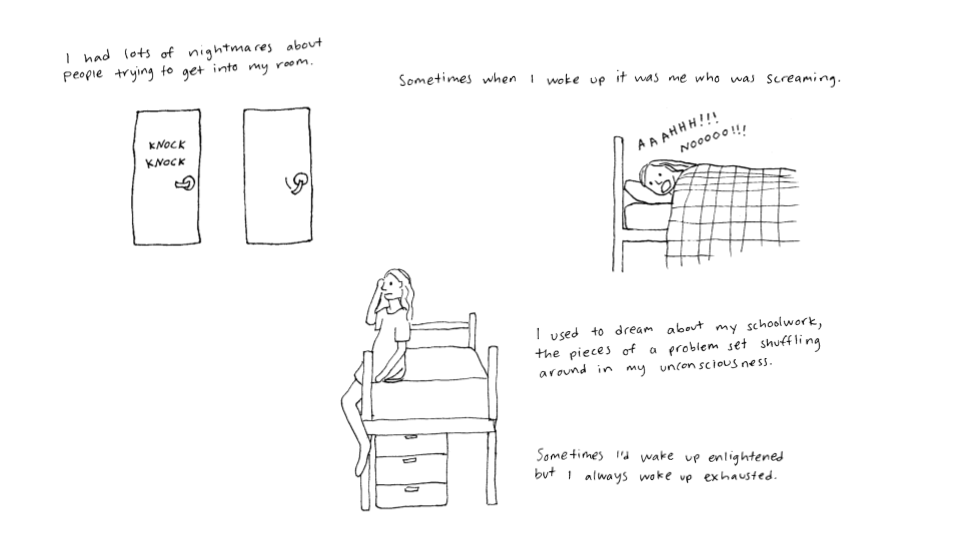 I had lots of nightmares about
people trying to get into my room.
Sometimes when I woke up it was me who was screaming.
KNOCK
KNOCK
AAAHHH!!!
NOOOOO!!!
I used to dream about my schoolwork,
the pieces of a problem set shuffling
around in my unconsciousness.
Sometimes I'd wake up enlightened
but I always woke up exhausted.